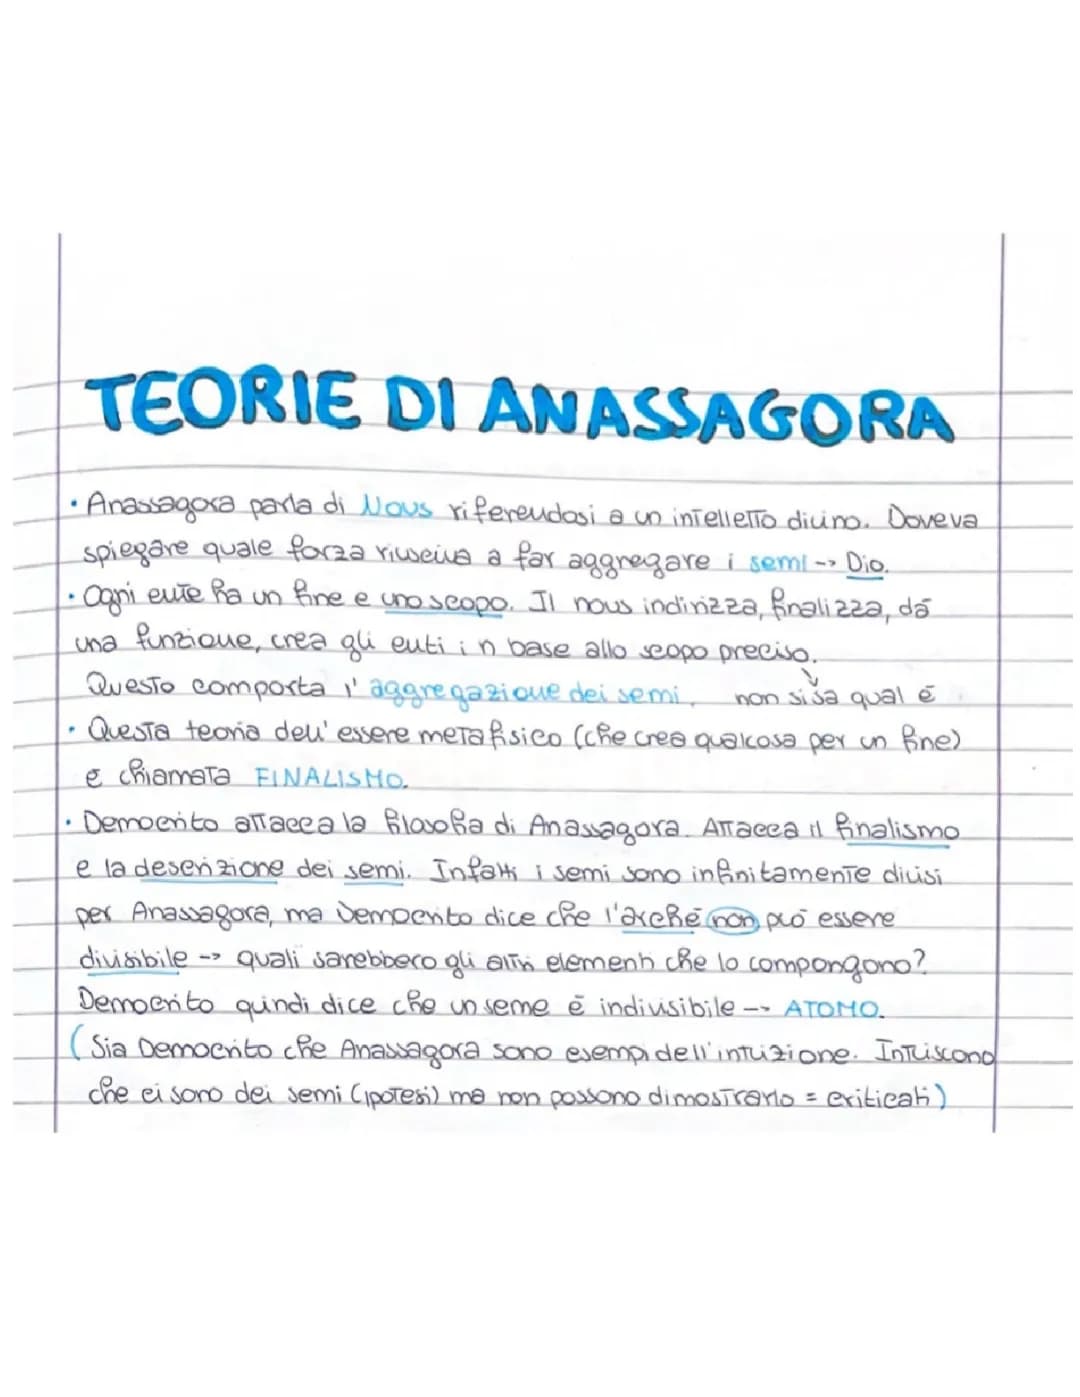 TEORIE DI ANASSAGORA
• Anassagora parla di Nous riferendosi a un intelletto divino. Doveva
spiegare quale forza riusciva a far aggregare i semi --> Dio.
• Ogni ente ha un fine e uno scopo. Il nous indirizza, finalizza, dà
una funzione, crea gli enti in base allo scopo preciso.
Questo comporta l'aggregazione dei semi. non si sa qual è
• Questa teoria dell'essere metafisico (che crea qualcosa per un fine)
è chiamata FINALISMO.
• Democrito attacca la filosofia di Anassagora. Attacca il finalismo
e la descrizione dei semi. Infatti i semi sono infinitamente divisi
per Anassagora, ma Democrito dice che l'archè non può essere
divisibile --> quali sarebbero gli altri elementi che lo compongono?
Democrito quindi dice che un seme è indivisibile --> ATOMO.
(Sia Democrito che Anassagora sono esempi dell'intuizione. Intuiscono
che ci sono dei semi (ipotesi) ma non possono dimostrarlo = criticati)